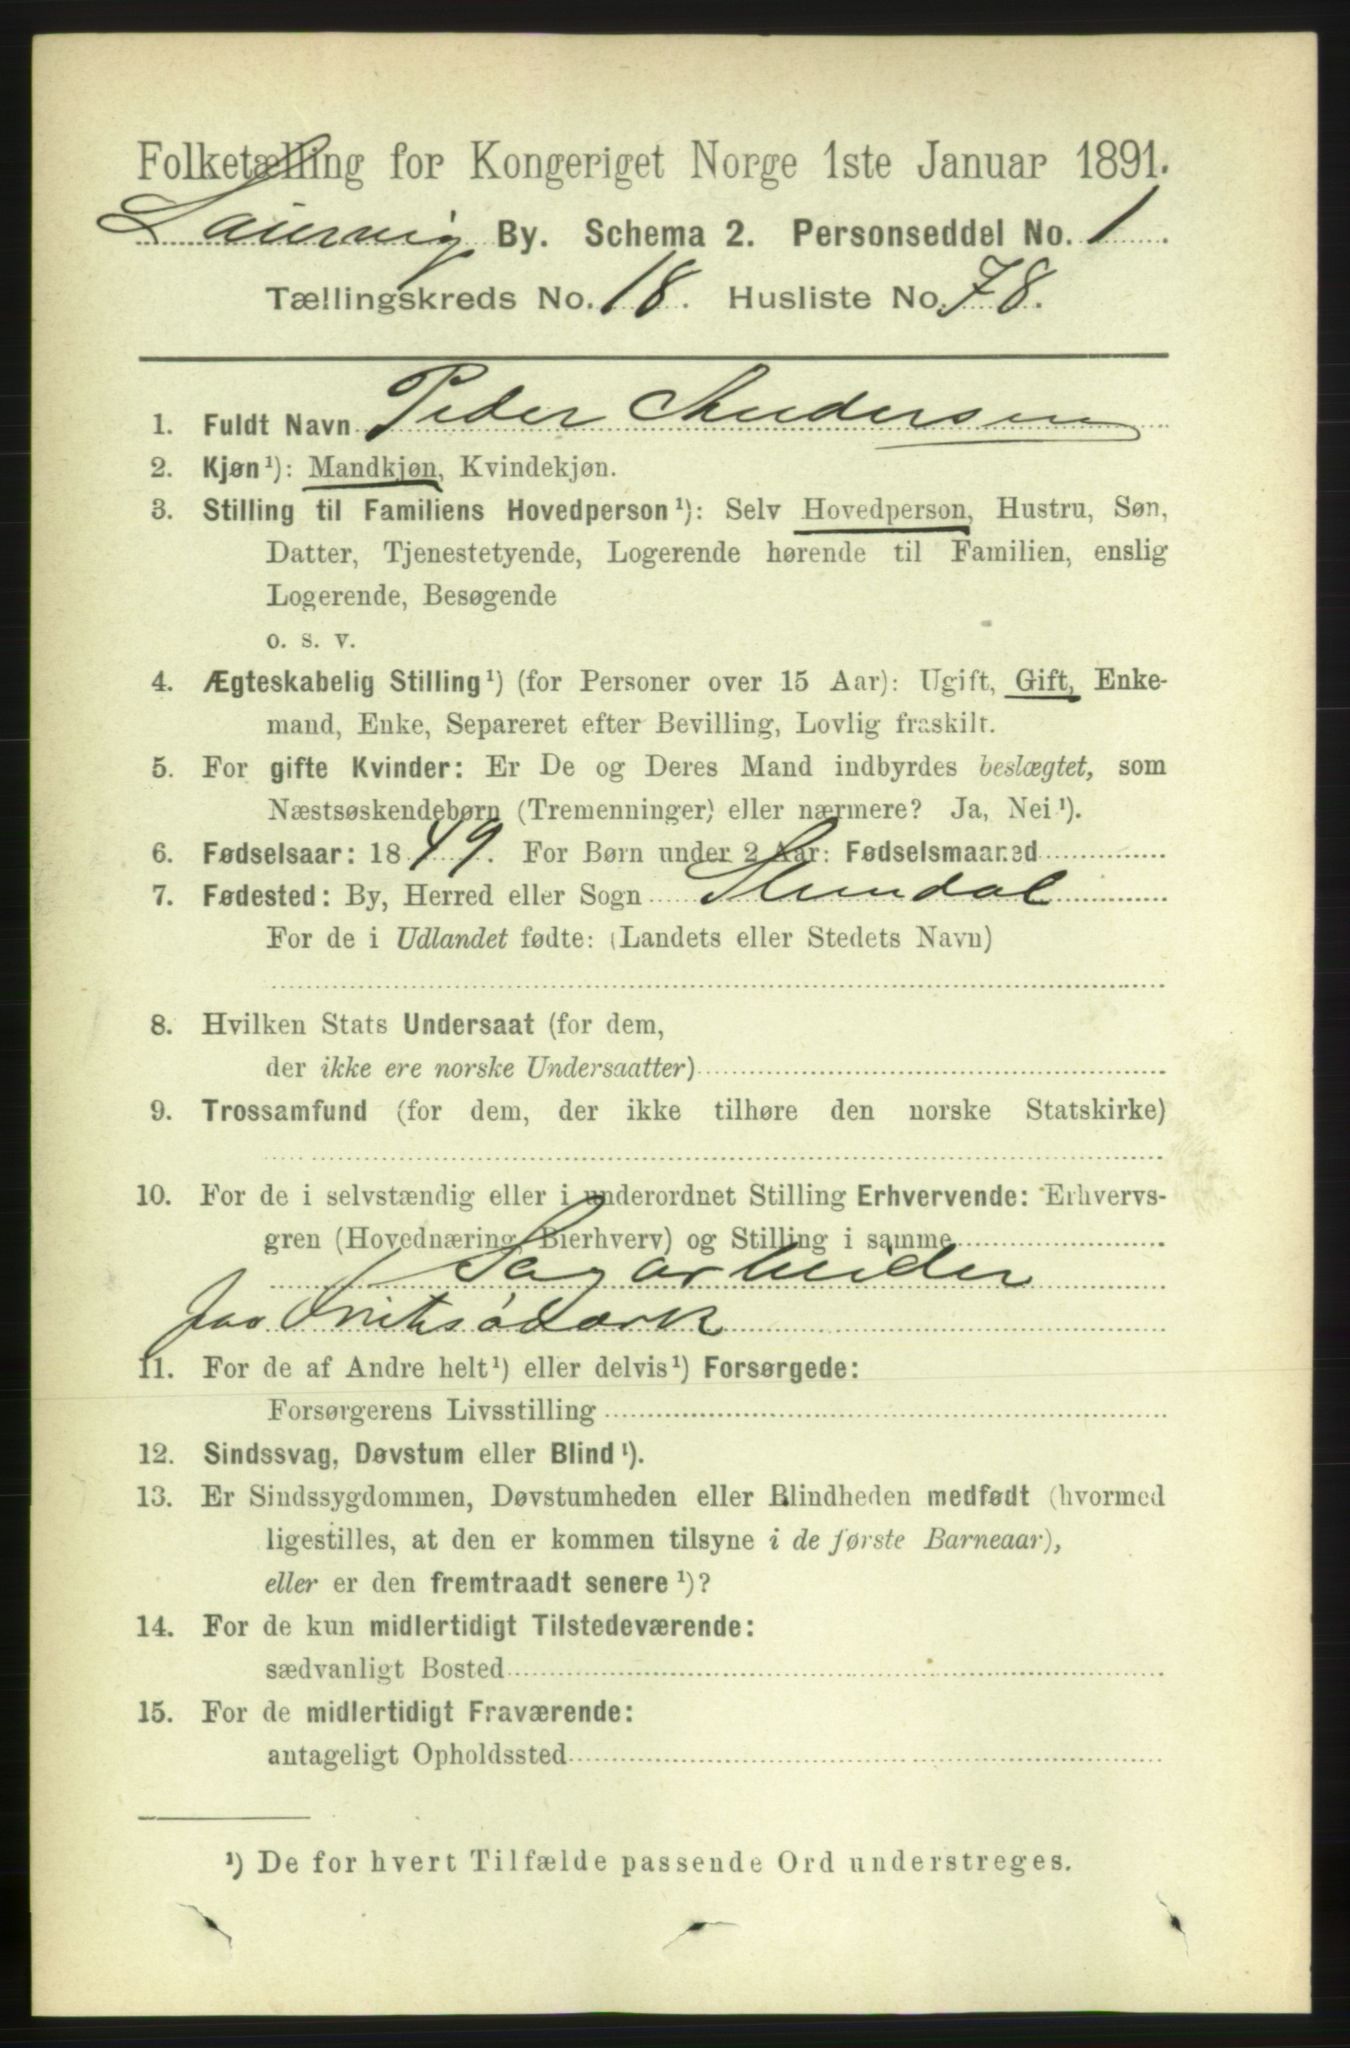 Folketælling for Kongeriget Norge 1ste Januar 1891.
Laurvig By. Schema 2. Personseddel No. 1
Tællingskreds No. 18. Husliste No. 78.
1. Fuldt Navn Peder Andersen
2. Kjøn¹): Mandkjøn, Kvindekjøn.
3. Stilling til Familiens Hovedperson¹): Selv Hovedperson, Hustru, Søn,
Datter, Tjenestetyende, Logerende hørende til Familien, enslig
Logerende, Besøgende
o. s. v.
4. Ægteskabelig Stilling¹) (for Personer over 15 Aar): Ugift, Gift, Enke-
mand, Enke, Separeret efter Bevilling, Lovlig fraskilt.
5. For gifte Kvinder: Er De og Deres Mand indbyrdes beslægtet, som
Næstsøskendebørn (Tremenninger) eller nærmere? Ja, Nei¹).
6. Fødselsaar: 1849. For Børn under 2 Aar: Fødselsmaaned
7. Fødested: By, Herred eller Sogn Slemdal
For de i Udlandet fødte: (Landets eller Stedets Navn)
8. Hvilken Stats Undersaat (for dem,
der ikke ere norske Undersaatter)
9. Trossamfund (for dem, der ikke tilhøre den norske Statskirke)
10. For de i selvstændig eller i underordnet Stilling Erhvervende: Erhvervs-
gren (Hovednæring, Bierhverv) og Stilling i samme
Sagarbeider
paa
11. For de af Andre helt¹) eller delvis¹) Forsørgede:
Forsørgerens Livsstilling
12. Sindssvag, Døvstum eller Blind¹).
13. Er Sindssygdommen, Døvstumheden eller Blindheden medfødt (hvormed
ligestilles, at den er kommen tilsyne i de første Barneaar),
eller er den fremtraadt senere¹)?
14. For de kun midlertidigt Tilstedeværende:
sædvanligt Bosted
15. For de midlertidigt Fraværende:
antageligt Opholdssted
¹) De for hvert Tilfælde passende Ord understreges.